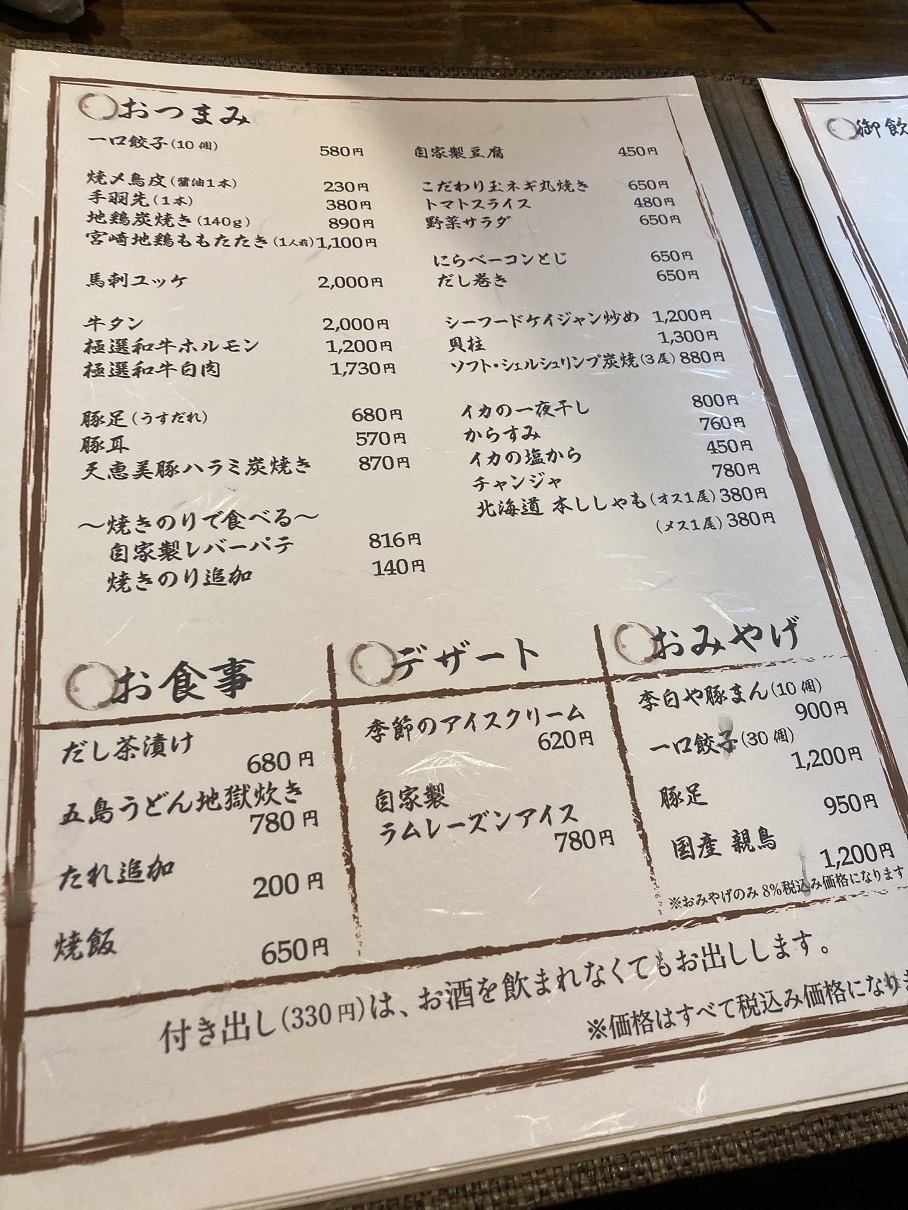 おつまみ
一口餃子(10個) 580円
焼〆鳥皮(醤油1本) 230円
手羽先(1本) 380円
地鶏炭焼き(140g) 890円
宮崎地鶏ももたたき(1人前) 1,100円
馬刺ユッケ 2,000円
牛タン 2,000円
極選和牛ホルモン 1,200円
極選和牛白肉 1,730円
豚足(うすだれ) 680円
豚耳 570円
天恵美豚ハラミ炭焼き 870円
〜焼きのりで食べる〜
自家製レバーパテ 816円
焼きのり追加 140円
自家製豆腐 450円
こだわり玉ネギ丸焼き 650円
トマトスライス 480円
野菜サラダ 650円
にらベーコンとじ 650円
だし巻き 650円
シーフードケイジャン炒め 1,200円
貝柱 1,300円
ソフト・シェルシュリンプ炭焼(3尾) 880円
イカの一夜干し 800円
からすみ 760円
イカの塩から 450円
チャンジャ 780円
北海道 本ししゃも(オス1尾) 380円
(メス1尾) 380円
お食事
だし茶漬け
680円
五島うどん地獄炊き
780円
たれ追加
200円
焼飯
650円
デザート
季節のアイスクリーム
620円
自家製
ラムレーズンアイス
780円
おみやげ
李白や豚まん(10個)
900円
一口餃子(30個)
1,200円
豚足
950円
国産 親鳥
1,200円
※おみやげのみ8%税込み価格になります
付き出し(330円)は、お酒を飲まれなくてもお出しします。
※価格はすべて税込み価格になりま
御飲